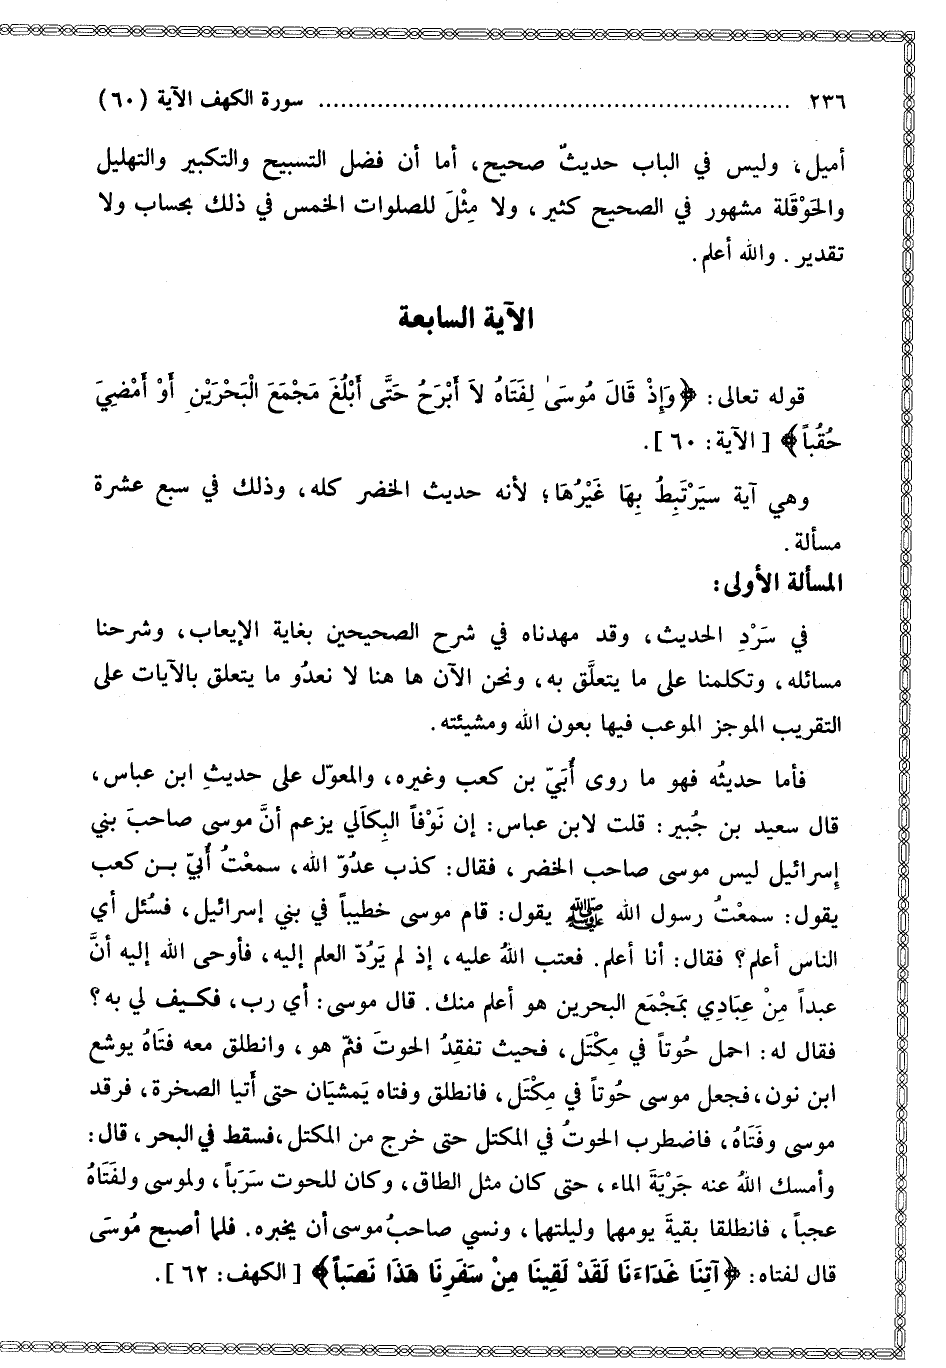 ٢٣٦ ................................................................ سورة الكهف الآية (٦٠)
أميل، وليس في الباب حديثٌ صحيح، أما أن فضل التسبيح والتكبير والتهليل
والحَوْقَلة مشهور في الصحيح كثير، ولا مِثْلَ للصلوات الخمس في ذلك بحساب ولا
تقدير. والله أعلم.
الآية السابعة
قوله تعالى: ﴿وَإِذْ قَالَ مُوسَىٰ لِفَتَاهُ لاَ أَبْرَحُ حَتَّى أَبْلُغَ مَجْمَعَ الْبَحْرَيْنِ أَوْ أَمْضِيَ
حُقُباً﴾ [الآية: ٦٠].
وهي آية سيَرْتَبِطُ بِهَا غَيْرُهَا؛ لأنه حديث الخضر كله، وذلك في سبع عشرة
مسألة.
المسألة الأولى:
في سَرْدِ الحديث، وقد مهدناه في شرح الصحيحين بغاية الإيعاب، وشرحنا
مسائله، وتكلمنا على ما يتعلَّق به، ونحن الآن ها هنا لا نعدُو ما يتعلق بالآيات على
التقريب الموجز الموعب فيها بعون الله ومشيئته.
فأما حديثُه فهو ما روى أُبَيّ بن كعب وغيره، والمعوّل على حديثِ ابن عباس،
قال سعيد بن جُبير: قلت لابن عباس: إن نَوْفاً البِكَالي يزعم أنَّ موسى صاحبَ بني
إسرائيل ليس موسى صاحب الخضر، فقال: كذب عدُوّ الله، سمعْتُ أُبيّ بن كعب
يقول: سمعْتُ رسول الله ﷺ يقول: قام موسى خطيباً في بني إسرائيل، فسُئل أي
الناس أعلم؟ فقال: أنا أعلم. فعتب اللهُ عليه، إذ لم يَرُدّ العلم إليه، فأوحى الله إليه أنَّ
عبداً مِنْ عِبَادِي بمَجْمَع البحرين هو أعلم منك. قال موسى: أي رب، فكيف لي به؟
فقال له: احمل حُوتاً في مِكْتَل، فحيث تفقِدُ الحوتَ فثمّ هو، وانطلق معه فتَاهُ يوشع
ابن نون، فجعل موسى حُوتاً في مِكْتَل، فانطلق وفتاه يَمشيَان حتى أَتيا الصخرة، فرقد
موسى وفَتَاهُ، فاضطرب الحوتُ في المكتل حتى خرج من المكتل، فسقط في البحر، قال:
وأمسك اللهُ عنه جَرْيَةَ الماء، حتى كان مثل الطاق، وكان للحوت سَرَباً، ولموسى ولفتَاهُ
عجباً، فانطلقا بقيةَ يومهما وليلتهما، ونسي صاحبُ موسى أن يخبره. فلما أصبح مُوسَى
قال لفتاه: ﴿آتِنَا غَدَاءَنَا لَقَدْ لَقِينَا مِنْ سَفَرِنَا هَذَا نَصَباً﴾ [الكهف: ٦٢].